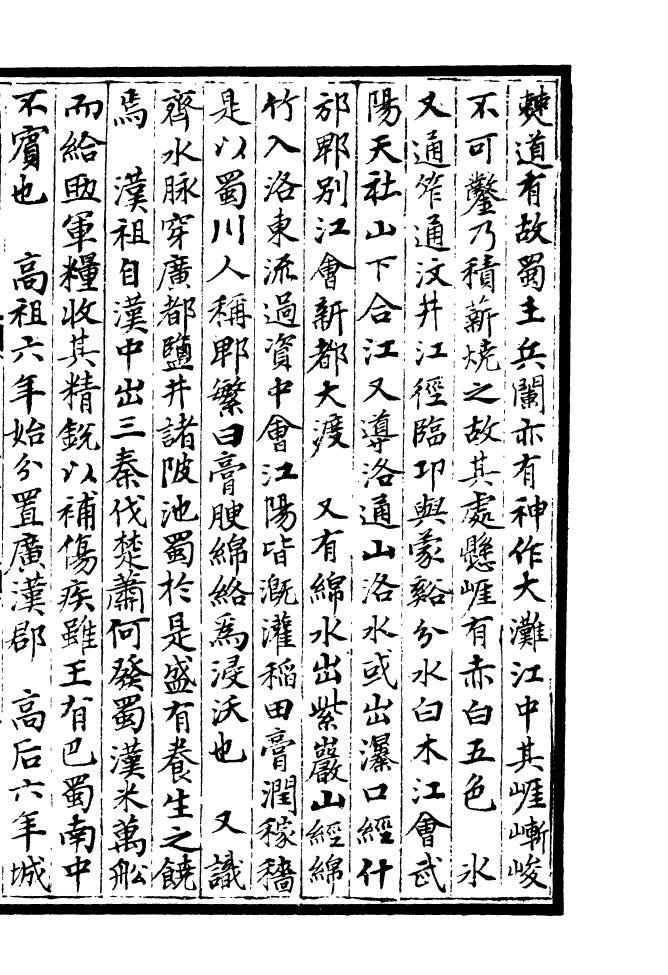 僰道有故蜀王兵闌亦有神作大灘江中其崕嶄峻
不可鑿乃積薪燒之故其處懸崕有赤白五色　水
又通笮通汶井江徑臨邛與蒙谿分水白木江會武
陽天社山下合江又導洛通山洛水或出瀑口經什
邡郫别江會新都大渡　又有綿水出紫巖山經綿
竹入洛東流過資中會江陽皆溉灌稻田膏潤稼穡
是以蜀川人稱郫繁曰膏腴綿絡爲浸沃也　又識
齊水脉穿廣都鹽井諸陂池蜀於是盛有養生之饒
焉　漢祖自漢中出三秦伐楚蕭何發蜀漢米萬舩
而給助軍糧收其精銳以補傷疾雖王有巴蜀南中
不賓也　高祖六年始分置廣漢郡　高后六年城